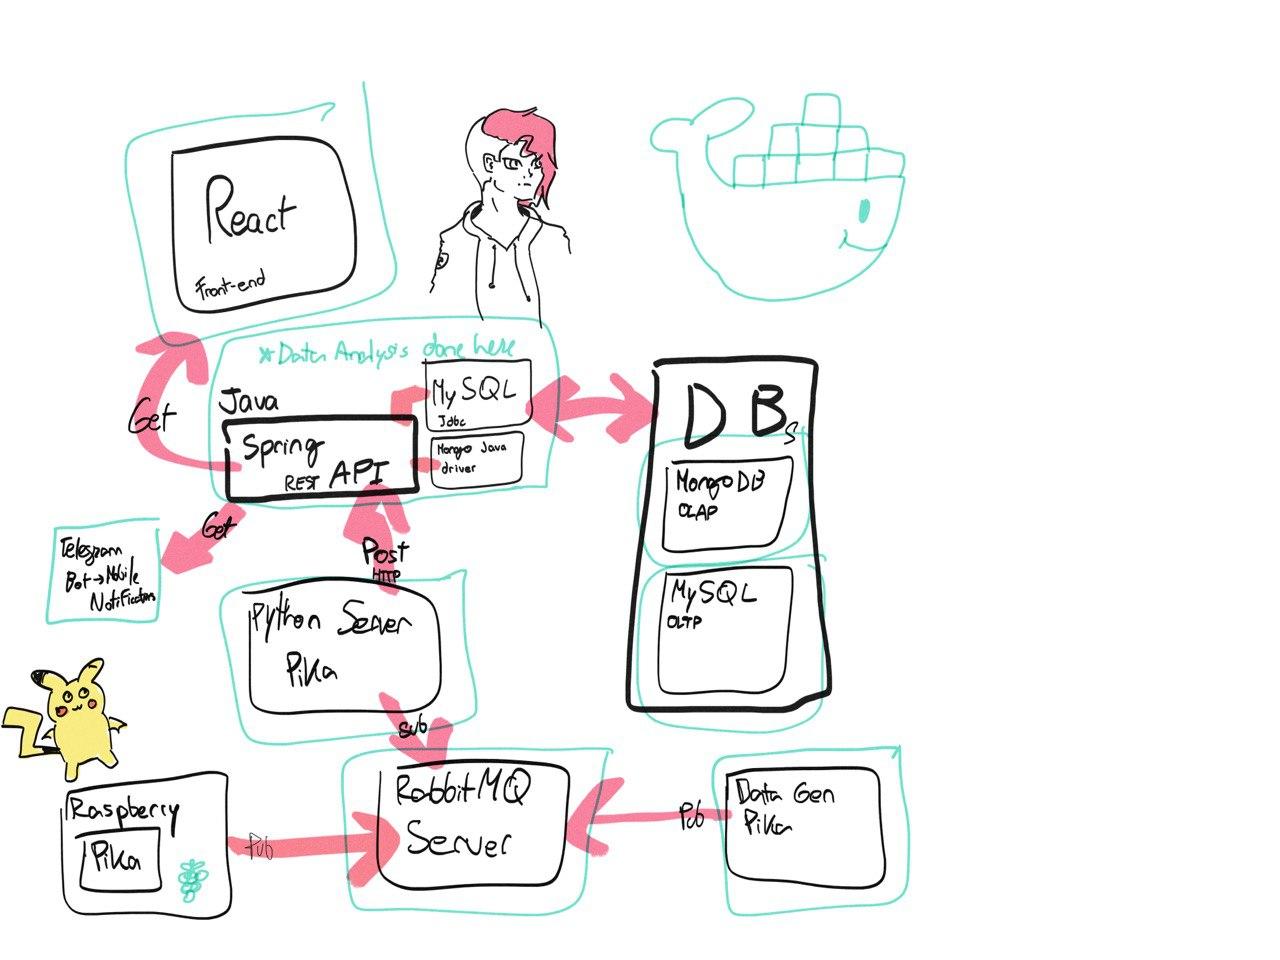 React
Front-end
*Data Analysis done here
Java
MySQL
Jdbc
Spring
REST API
Mongo Java
driver
Get
DBs
MongoDB
OLAP
MySQL
OLTP
Get
Telegram
Bot→Mobile
Notifications
Post
HTTP
Python Server
Pika
sub
Raspberry
Pika
Pub
RabbitMQ
Server
Pub
Data Gen
Pika